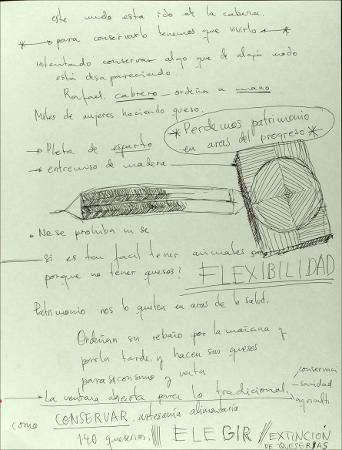 este mundo esta ido de la cabeza.
* para conservarlo tenemos que vivirlo *
intentando conservar algo que de algún modo
está desapareciendo.
Rafael, cabrero - ordeña a mano
Miles de mujeres haciendo queso.
* Perdemos patrimonio
en aras del progreso *
Pleita de esparto
entremiso de madera
si es tan facil tener animales
porque no tener quesos?
FLEXIBILIDAD
Patrimonio nos lo quitan en aras de la salud.
Ordeñan su rebaño por la mañana y
por la tarde, y hacen sus quesos
para si consumo y venta
La ventana abierta para lo tradicional,
sanidad
como CONSERVAR artesanía alimentaria
140 queseros, !!! ELEGIR // EXTINCIÓN
DE QUESERÍAS